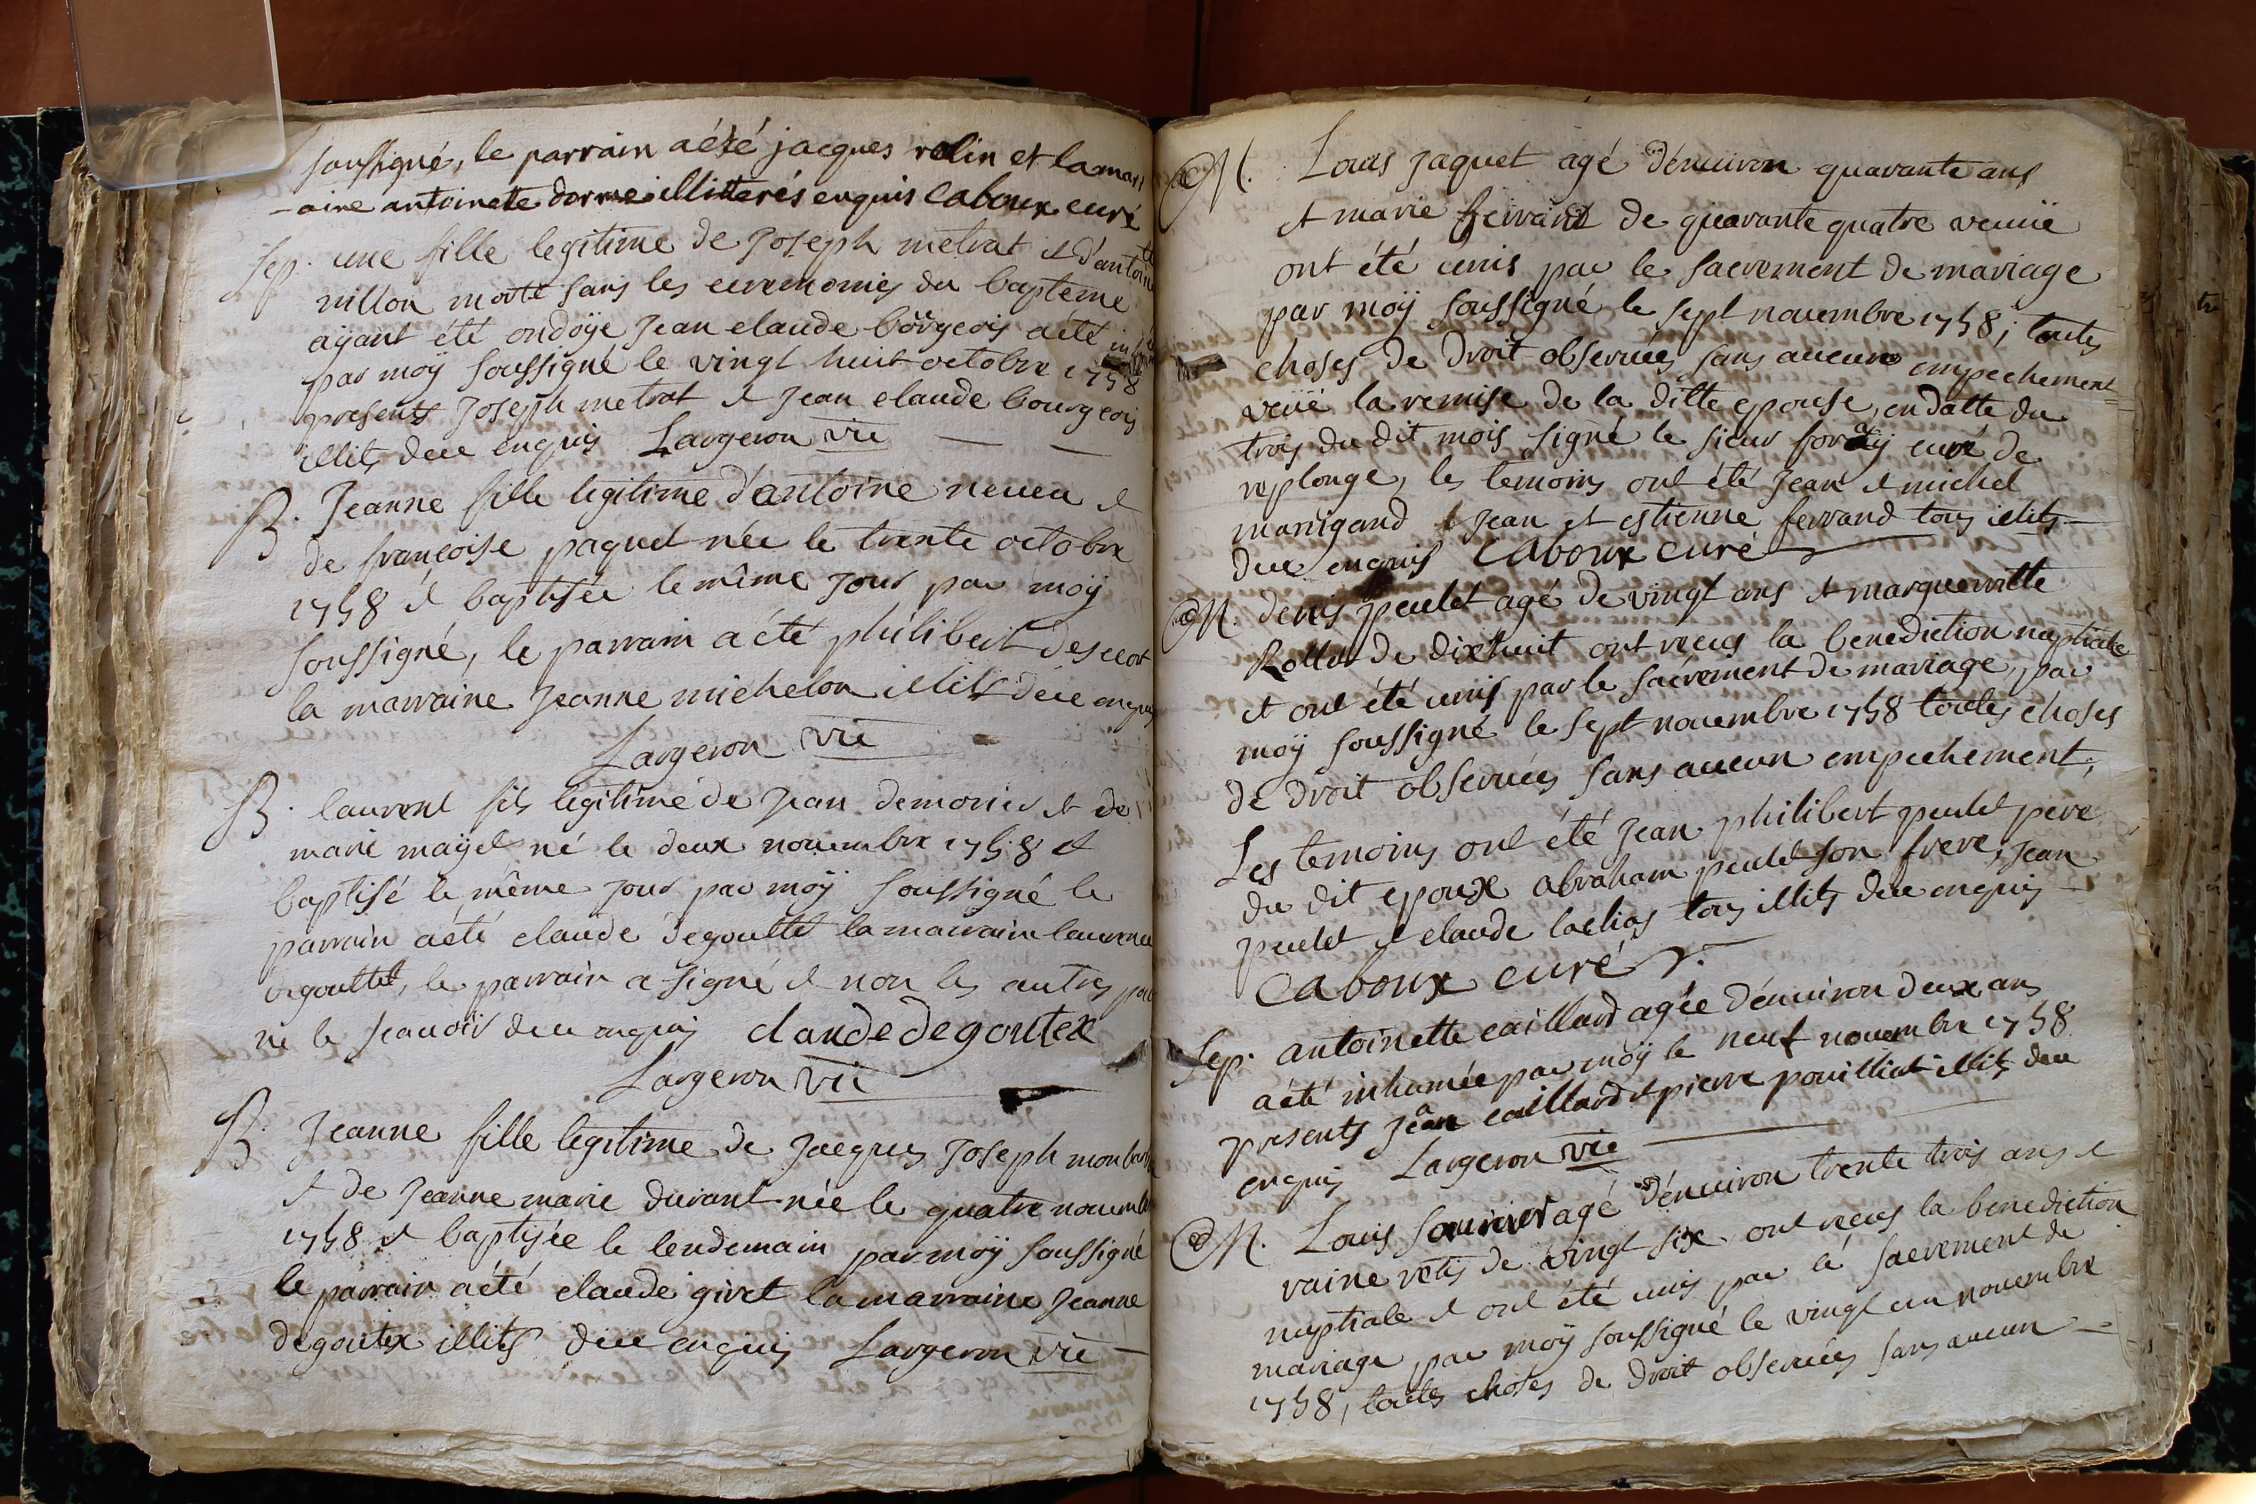 soussigné, le parrain a été jacques rolin et la marr
-aine antoinette dorme illitterés enquis Caboux curé
Sep. une fille legitime de Joseph metrat et d'antoinette
nillon morte sans les ceremonies du bapteme
aÿant été ondoÿé Jean claude bourgeois a été inhumé
par moÿ soussigné le vingt huit octobre 1758
presents Joseph metrat et Jean claude bourgeois
illits deue enquis Largeron vic
B. Jeanne fille legitime d'antoine neveu et
de françoise paquet née le trente octobre
1758 et baptisée le même Jour par moÿ
soussigné, le parrain a été philibert descort
la marraine Jeanne michelon illits deue enquis
Largeron vic
B. laurent fils legitime de Jean demorier et de
marie maÿet né le deux novembre 1758 et
baptisé le même Jour par moÿ soussigné le
parrain a été claude degouttet la marraine laurence
degouttet, le parrain a signé et non les autres pour
ne le scauoir deue enquis claude degoutex
Largeron vic
B. Jeanne fille legitime de Jacques Joseph
et de Jeanne marie durant née le quatre novembre
1758 et baptisée le lendemain par moÿ soussigné
le parrain a été claude givet la marraine Jeanne
degoutex illits deue enquis Largeron vic
M. Louis Jaquet agé d'enuiron quarante ans
et marie ferrand de quarante quatre veuue
ont été unis par le sacrement de mariage
par moÿ soussigné le sept nouembre 1758; toutes
choses de droit obseruées sans aucune empechement
veüe la remise de la ditte epouse, en datte du
trois du dit mois signé le sieur foraÿ curé de
replonge, les temoins ont été Jean et michel
manigand et Jean et estienne ferrand tous illits
deue enquis Caboux curé
M. denis peulet agé de vingt ans et marguerritte
Rollet de dixhuit ont recus la benediction nuptiale
et ont été unis par le sacrement de mariage, par
moÿ soussigné le sept nouembre 1758 toutes choses
de droit obseruées sans aucun empechement,
Les temoins ont été Jean philibert peulet pere
du dit epoux abraham peulet son frere, Jean
peulet et claude lachias tous illits deue enquis
Caboux curé
Sep. antoinette caillard agée d'enuiron deux ans
a été inhumée par moÿ le neuf nouembre 1758
presents Jean caillard et pierre pouilliat illits deue
enquis Largeron vic
M. Louis agé d'enuiron trente trois ans et
vaine vetis de vingt six ont recus la benediction
nuptiale et ont été unis par le sacrement de
mariage par moÿ soussigné le vingt un nouembre
1758, toutes choses de droit obseruées sans aucun